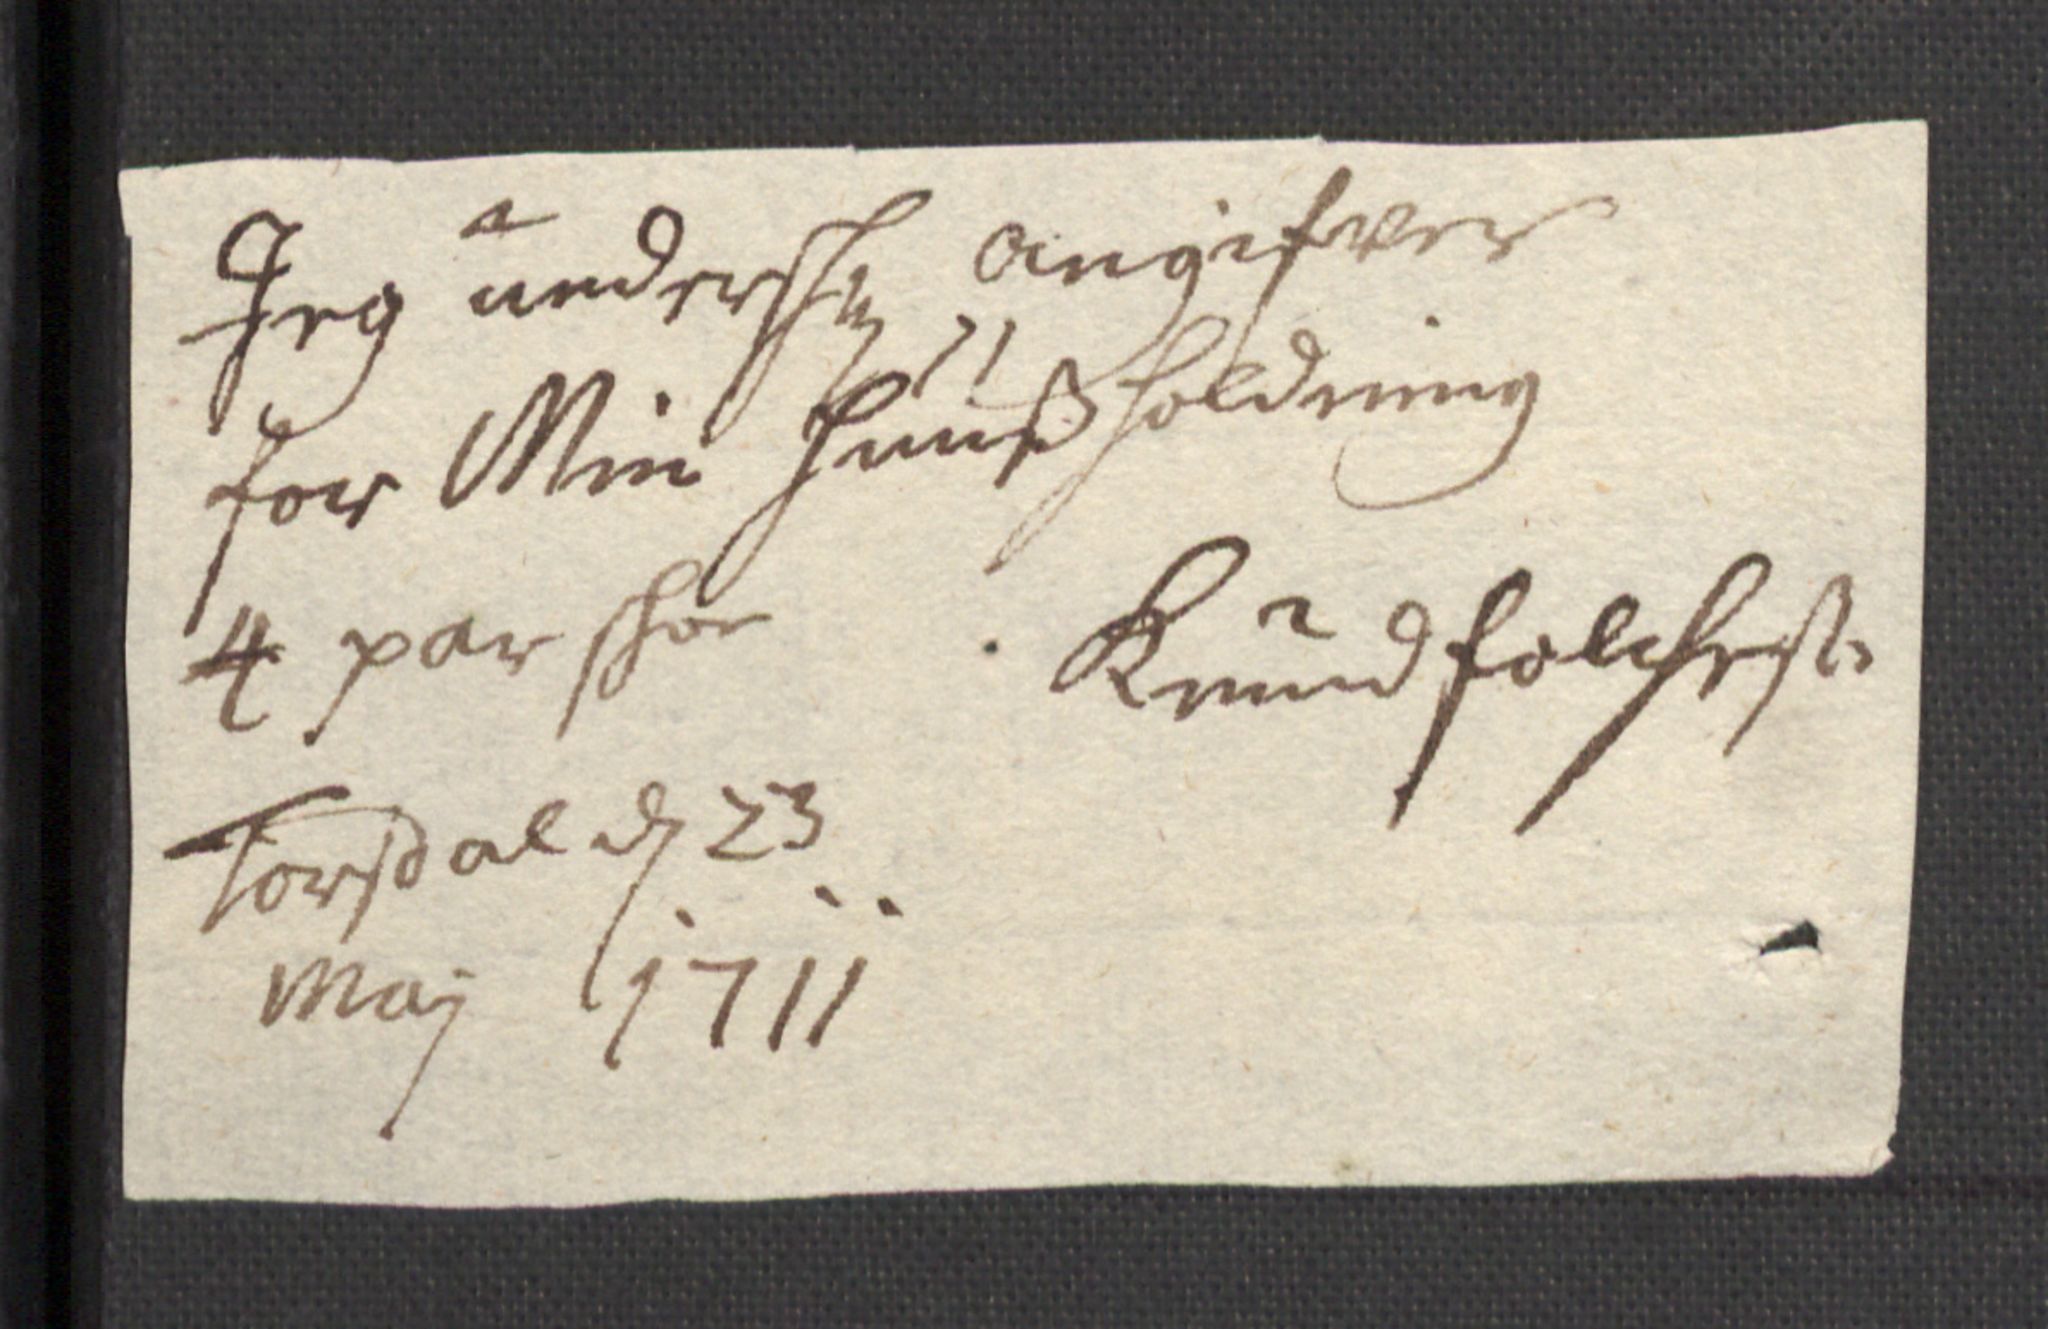 Jeg undershr angifver
for Min Huußholdning
4 par shoe
Knud folchest:
Torsdal d 23
Maj 1711